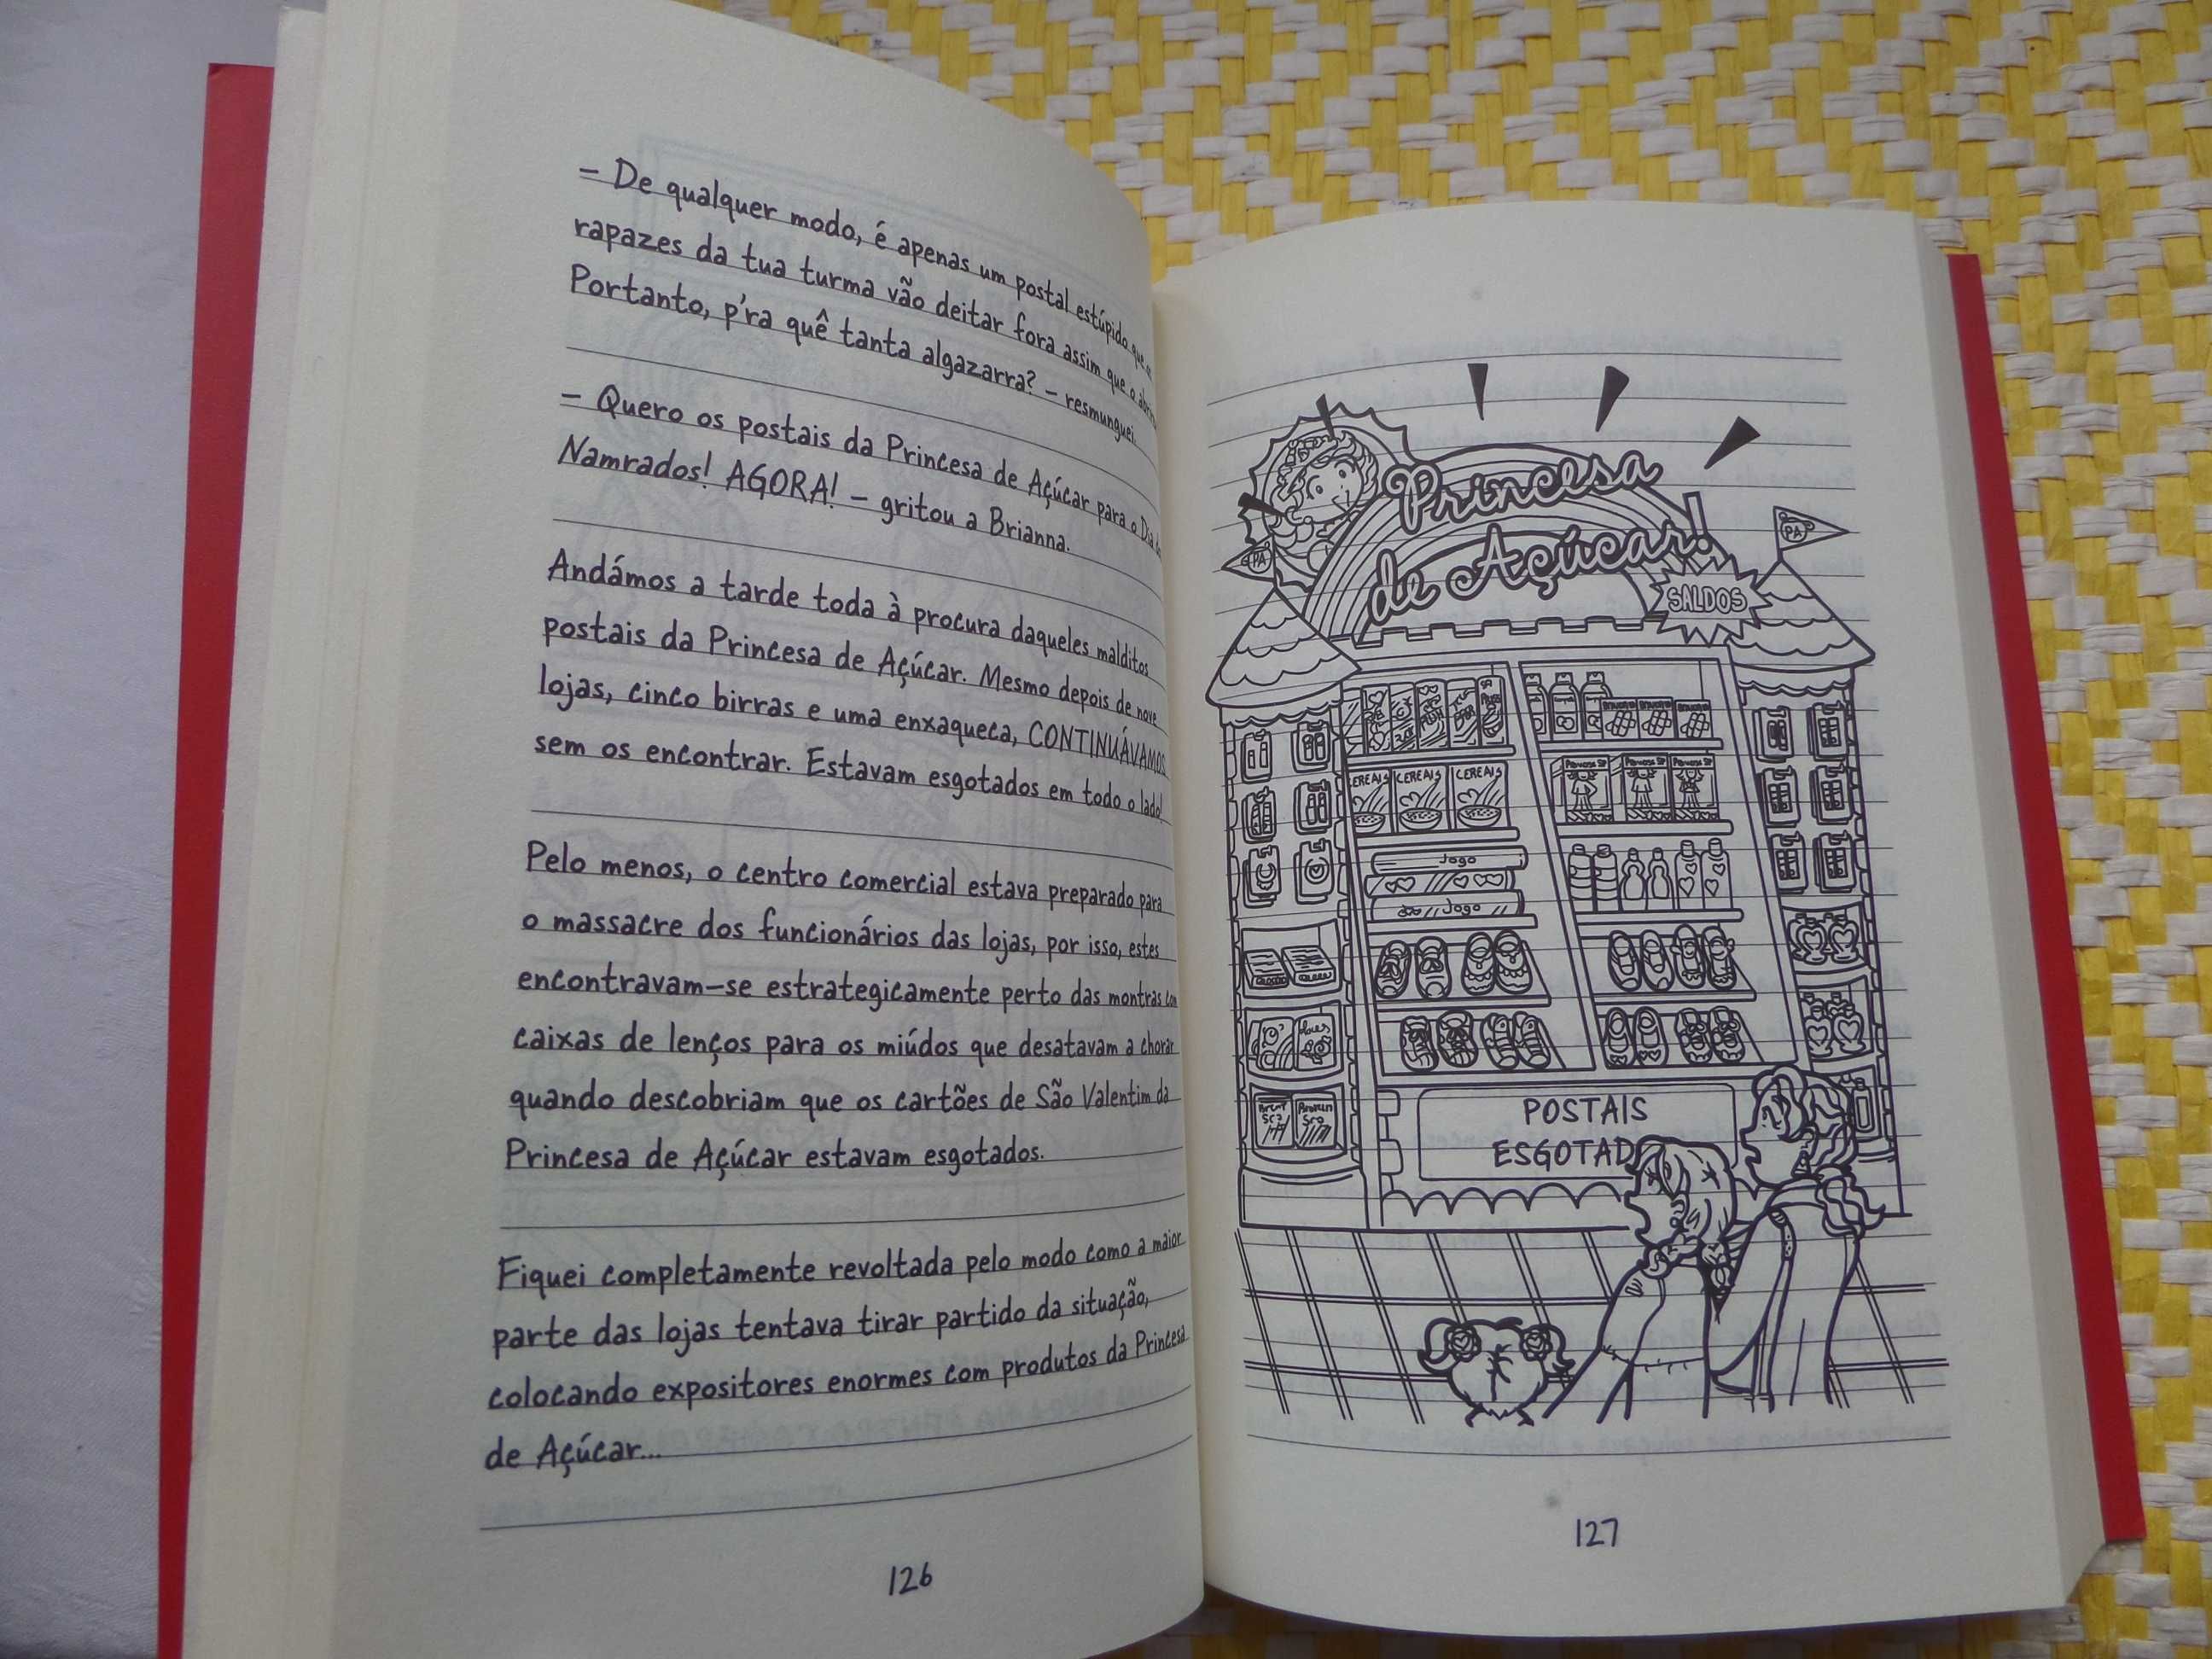 – De qualquer modo, é apenas um postal estúpido que os
rapazes da tua turma vão deitar fora assim que o abrir
Portanto, p'ra quê tanta algazarra? – resmunguei.
– Quero os postais da Princesa de Açúcar para o Dia dos
Namrados! AGORA! – gritou a Brianna.
Andámos a tarde toda à procura daqueles malditos
postais da Princesa de Açúcar. Mesmo depois de nove
lojas, cinco birras e uma enxaqueca, CONTINUÁVAMOS
sem os encontrar. Estavam esgotados em todo o lado!
Pelo menos, o centro comercial estava preparado para
o massacre dos funcionários das lojas, por isso, estes
encontravam-se estrategicamente perto das montras com
caixas de lenços para os miúdos que desatavam a chorar
quando descobriam que os cartões de São Valentim da
Princesa de Açúcar estavam esgotados.
Fiquei completamente revoltada pelo modo como a maior
parte das lojas tentava tirar partido da situação,
colocando expositores enormes com produtos da Princesa
de Açúcar...
126
Princesa
de Açúcar!
PA
PA
SALDOS
CEREAIS CEREAIS CEREAIS
Jogo
Jogo
POSTAIS
ESGOTAD
127